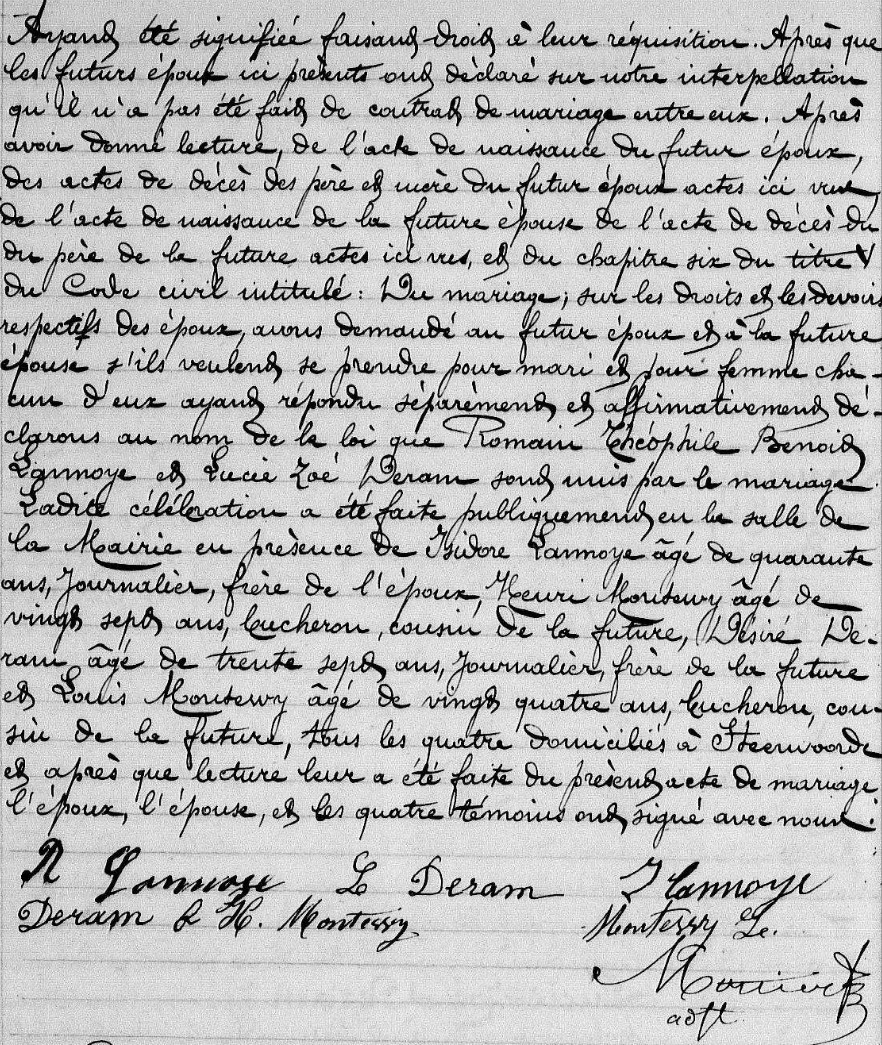 Ayant été signifiée faisant droit à leur réquisition. Après que
les futurs époux ici présents ont déclaré sur notre interpellation
qu'il n'a pas été fait de contrat de mariage entre eux. Après
avoir donné lecture, de l'acte de naissance du futur époux,
des actes de décès des père et mère du futur époux actes ici vus,
de l'acte de naissance de la future épouse de l'acte de décès du
du père de la future actes ici vus, et du chapitre six du titre V
du Code civil intitulé : Du mariage ; sur les droits et les devoirs
respectifs des époux, avons demandé au futur époux et à la future
épouse s'ils veulent se prendre pour mari et pour femme cha-
cun d'eux ayant répondu séparément et affirmativement dé-
clarons au nom de la loi que Romain Théophile Benoit
Lannoye et Lucie Zoé Deram sont unis par le mariage.
Ladite célébration a été faite publiquement en la salle de
la Mairie en présence de Isidore Lannoye âgé de quarante
ans, Journalier, frère de l'époux, Henri Montewy âgé de
vingt sept ans, bucheron, cousin de la future, Désiré De-
ram âgé de trente sept ans, Journalier, frère de la future
et Louis Montewy âgé de vingt quatre ans, bucheron, cou-
sin de la future, tous les quatre domiciliés à Steenvoorde
et après que lecture leur a été faite du présent acte de mariage
l'époux, l'épouse, et les quatre témoins ont signé avec nous.
R Lannoye L Deram I Lannoye
Deram D H. Montessy Montessy Le.
adjt